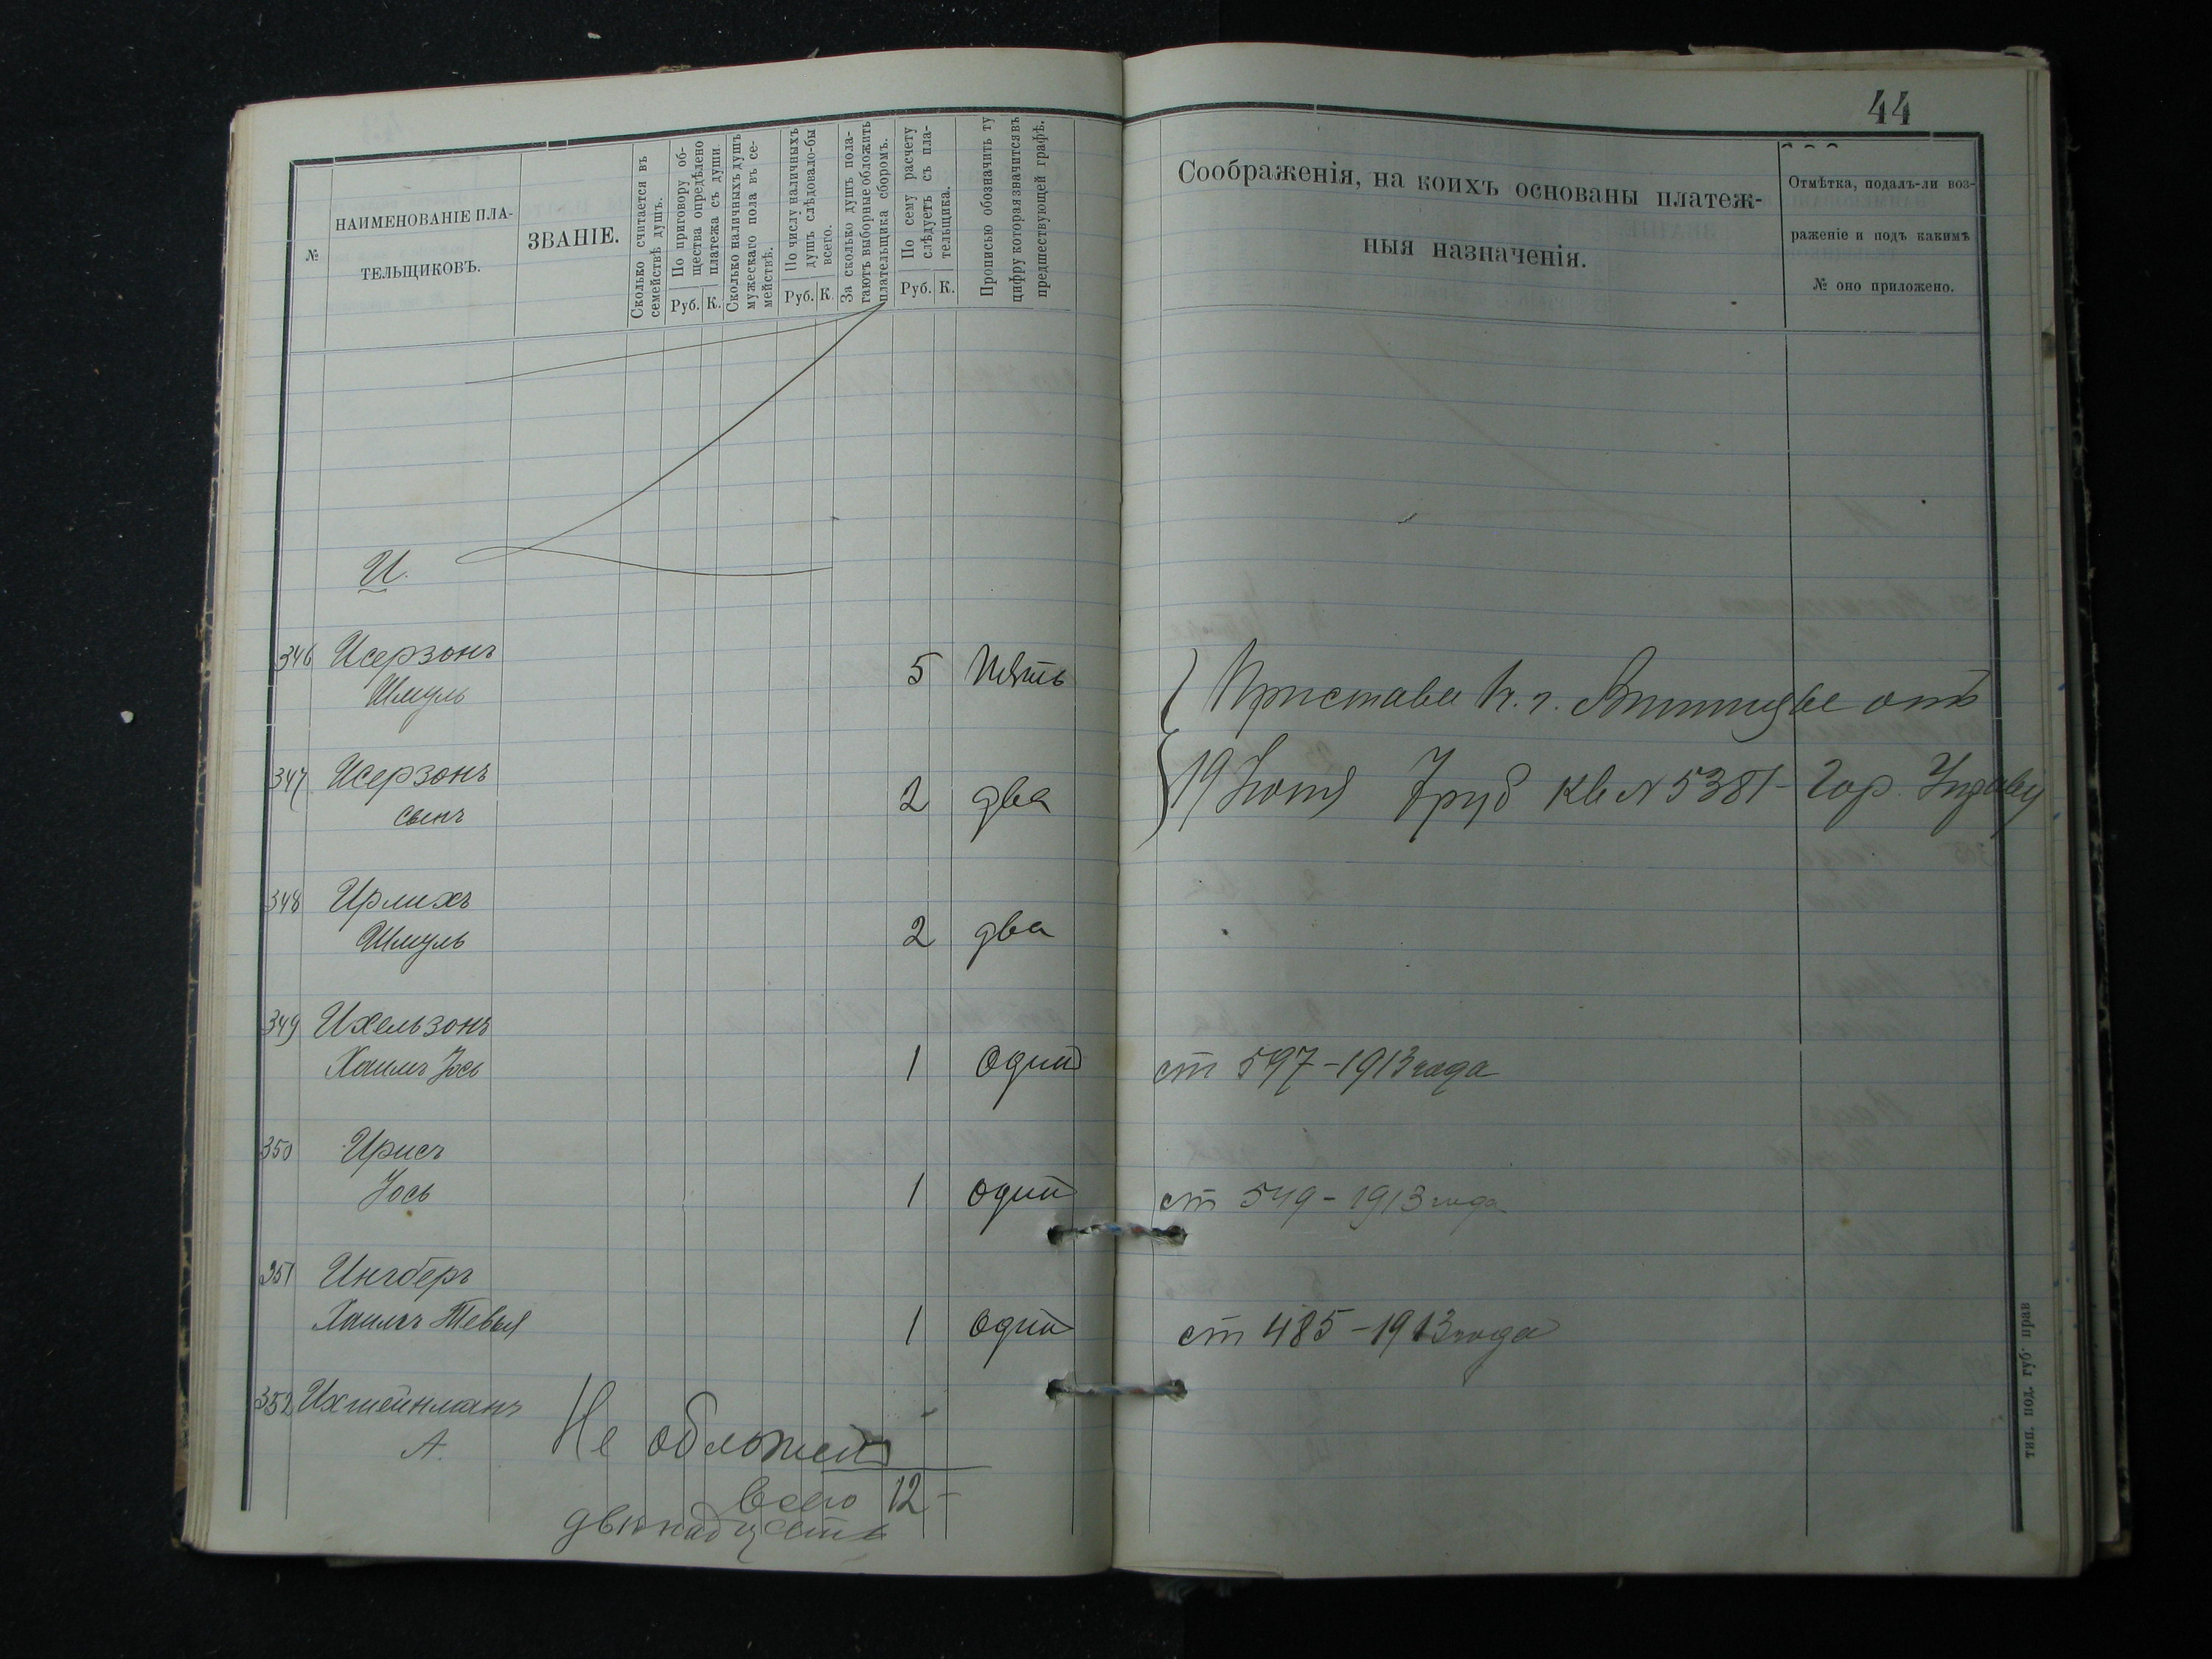 44
№
НАИМЕНОВАНІЕ ПЛА-
ТЕЛЬЩИКОВЪ.
ЗВАНІЕ.
Сколько считается въ
семействѣ душъ.
По приговору об-
щества опредѣлено
платежа съ души.
Руб. К.
Сколько наличныхъ душъ
мужескаго пола въ се-
мействѣ.
По числу наличныхъ
душъ слѣдовало-бы
всего.
Руб. К.
За сколько душъ пола-
гаютъ выборные обложить
плательщика сборомъ.
По сему расчету
слѣдуетъ съ пла-
тельщика.
Руб. К.
Прописью обозначить ту
цифру которая значится въ
предшествующей графѣ.
Соображенія, на коихъ основаны платеж-
ныя назначенія.
Отмѣтка, подалъ-ли воз-
раженіе и подъ какимъ
№ оно приложено.
И.
346 Исерзонъ
Шмуль 5 Пять
347 Исерзонъ
сынъ 2 два
Пристава г. отъ
19 7 руб кв № 5381 Гор.
348 Ирлихъ
Шмуль 2 два
349 Ихельзонъ
Хаимъ Іось 1 один ст 597-1913 года
350 Ирисъ
Іось 1 один ст 549-1913 года
351 Ингберъ
Хаимъ Тевья 1 один ст 485-1913 года
352 Ихтейнманъ
А. Не обложенъ
всего 12 -
двѣнадцать
тип. под. губ. прав